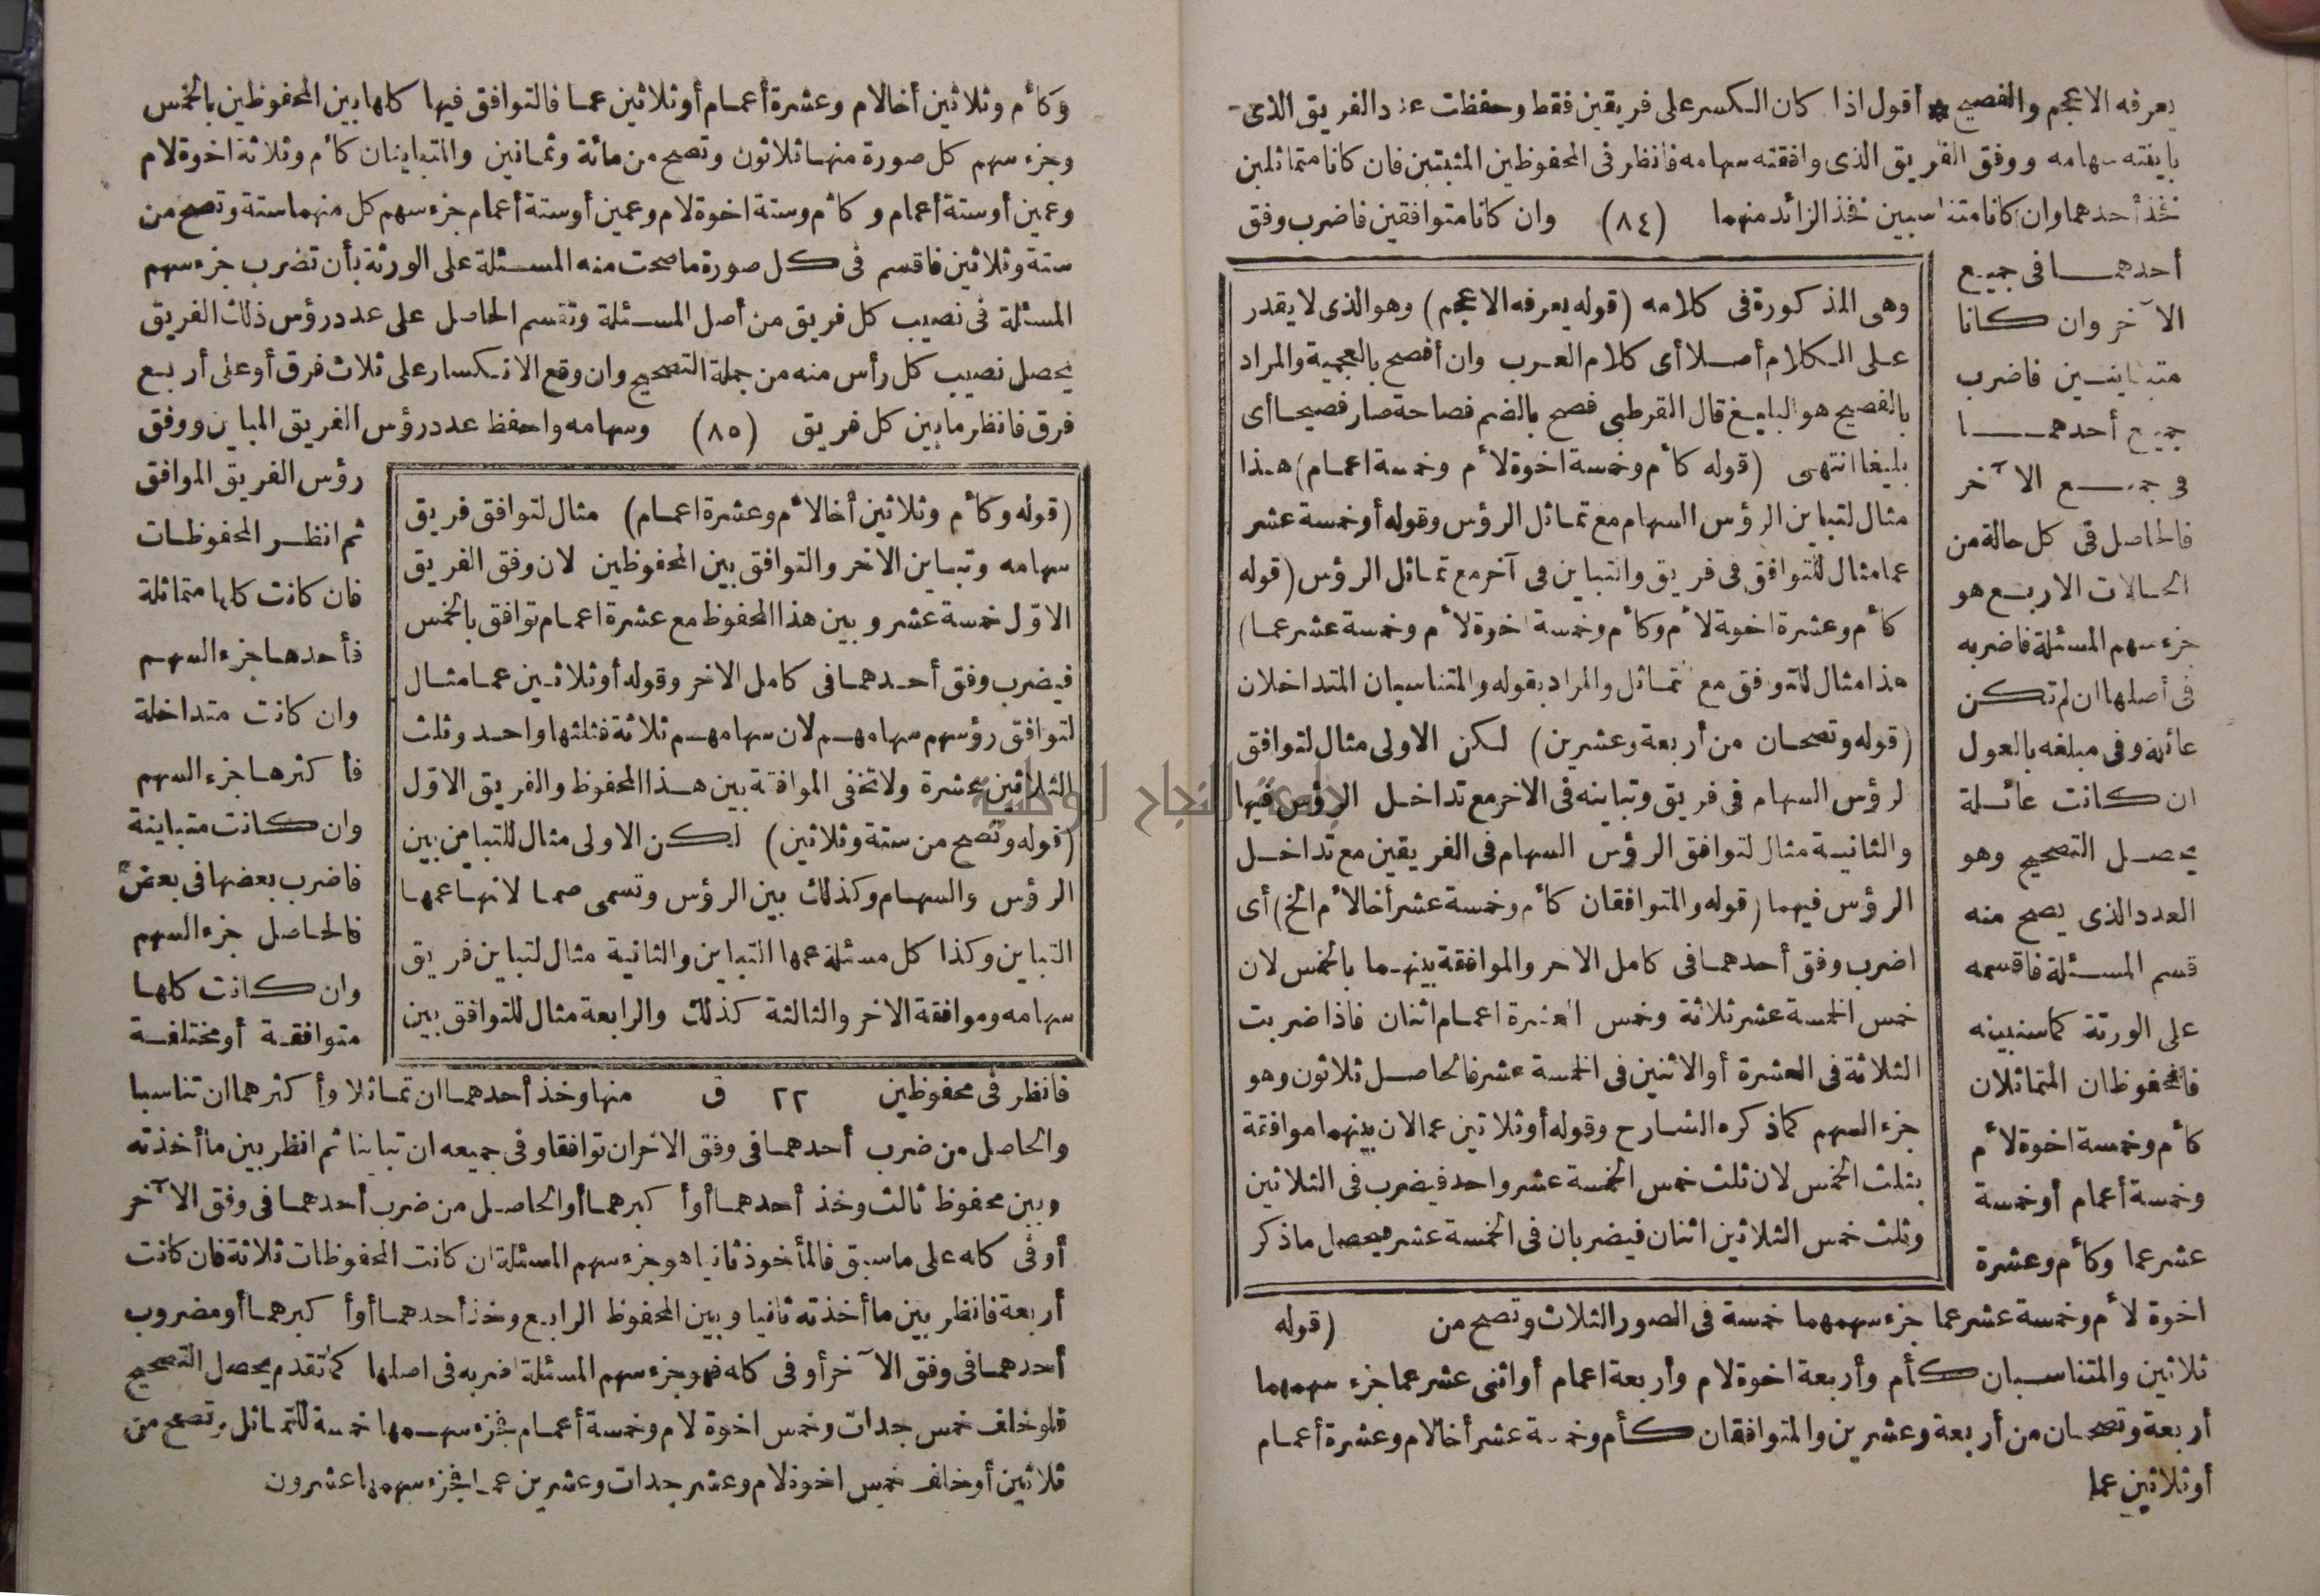 يعرفه الاعجم والفصيح * أقول اذا كان الكسر على فريقين فقط وحفظت عدد الفريق الذى
باينته سهامه ووفق الفريق الذى وافقته سهامه فانظر فى المحفوظين المثبتين فان كانا متماثلين
نخذ أحدهما وان كانا متناسبين نخذ الزائد منهما (٨٤) وان كانا متوافقين فاضرب وفق
أحدهما فى جميع
الآخر وان كانا
متباينين فاضرب
جميع أحدهما
فى جميع الآخر
فالحاصل فى كل حالة من
الحالات الاربع هو
جزء سهم المسئلة فاضربه
فى أصلها ان لم تكن
عائلة وفى مبلغه بالعول
ان كانت عائلة
يحصل التصحيح وهو
العدد الذى يصح منه
قسم المسئلة فاقسمه
على الورثة كما سنبينه
فالمحفوظان المتماثلان
كأم وخمسة اخوة لأم
وخمسة أعمام أو خمسة
عشر عما وكأم وعشرة
اخوة لأم وخمسة عشر عما جزء سهمهما خمسة فى الصور الثلاث وتصح من (قوله
ثلاثين والمتناسبان كأم وأربعة اخوة لام وأربعة اعمام أو اثنى عشر عما جزء سهمهما
أربعة وتصحان من أربعة وعشرين والمتوافقان كأم وخمسة عشر أخالام وعشرة أعمام
أو ثلاثين عما
وهى المذكورة فى كلامه (قوله يعرفه الاعجم) وهو الذى لا يقدر
على الكلام أصلا أى كلام العرب وان أفصح بالعجمية والمراد
بالفصيح هو البليغ قال القرطبى فصح بالضم فصاحة صار فصيحا أى
بليغا انتهى (قوله كأم وخمسة اخوة لأم وخمسة اعمام) هذا
مثال لتباين الرؤس السهام مع تماثل الرؤس وقوله أو خمسة عشر
عما مثال للتوافق فى فريق والتباين فى آخر مع تماثل الرؤس (قوله
كأم وعشرة اخوة لأم وكأم وخمسة اخوة لأم وخمسة عشر عما)
هذا مثال للتوافق مع تماثل والمراد بقوله والمتناسبان المتداخلان
(قوله وتصحان من أربعة وعشرين) لكن الاولى مثال لتوافق
لرؤس السهام فى فريق وتباينه فى الاخر مع تداخل الرؤس فيها
والثانية مثال لتوافق الرؤس السهام فى الفريقين مع تداخل
الرؤس فيهما (قوله والمتوافقان كأم وخمسة عشر أخالأم الخ) أى
اضرب وفق أحدهما فى كامل الاخر والموافقة بينهما بالخمس لان
خمس الخمسة عشر ثلاثة وخمس العشرة اعمام اثنان فاذا ضربت
الثلاثة فى العشرة أو الاثنين فى الخمسة عشر فالحاصل ثلاثون وهو
جزء السهم كما ذكره الشارح وقوله أو ثلاثين عما لان بينهما موافقة
بثلث الخمس لان ثلث خمس الخمسة عشر واحد فيضرب فى الثلاثين
وثلث خمس الثلاثين اثنان فيضربان فى الخمسة عشر فيحصل ما ذكر
وكأم وثلاثين أخالام وعشرة أعمام أو ثلاثين عما فالتوافق فيها كلها بين المحفوظين بالخمس
وجزء سهم كل صورة منها ثلاثون وتصح من مائة وثمانين والمتباينان كأم وثلاثة اخوة لام
وعمين أو ستة أعمام وكأم وستة اخوة لام وعمين أو ستة أعمام جزء سهم كل منهما ستة وتصح من
ستة وثلاثين فاقسم فى كل صورة ما صحت منه المسئلة على الورثة بأن تضرب جزء سهم
المسئلة فى نصيب كل فريق من أصل المسئلة وتقسم الحاصل على عدد رؤس ذلك الفريق
يحصل نصيب كل رأس منه من جملة التصحيح وان وقع الانكسار على ثلاث فرق أو على أربع
فرق فانظر ما بين كل فريق (٨٥) وسهامه واحفظ عدد رؤس الفريق المباين ووفق
رؤس الفريق الموافق
ثم انظر المحفوظات
فان كانت كلها متماثلة
فأحدها جزء السهم
وان كانت متداخلة
فأكثرها جزء السهم
وان كانت متباينة
فاضرب بعضها فى بعض
فالحاصل جزء السهم
وان كانت كلها
متوافقة أو مختلفة
فانظر فى محفوظين ٢٢ ق منها وخذ أحدهما ان تماثلا وأكثرهما ان تناسبا
والحاصل من ضرب أحدهما فى وفق الاخر ان توافقا وفى جميعه ان تباينا ثم انظر بين ما أخذته
وبين محفوظ ثالث وخذ أحدهما أو أكبرهما أو الحاصل من ضرب أحدهما فى وفق الآخر
أو فى كله على ما سبق فالمأخوذ ثانيا هو جزء سهم المسئلة ان كانت المحفوظات ثلاثة فان كانت
أربعة فانظر بين ما أخذته ثانيا وبين المحفوظ الرابع وخذ أحدهما أو أكبرهما أو مضروب
أحدهما فى وفق الآخر أو فى كله فهو جزء سهم المسئلة اضربه فى اصلها كما تقدم يحصل التصحيح
فلو خلف خمس جدات وخمس اخوة لام وخمسة أعمام فجزء سهمها خمسة للتماثل وتصح من
ثلاثين أو خلف خمس اخوة لام وعشر جدات وعشرين عما فجزء سهمها عشرون
(قوله وكأم وثلاثين أخالأم وعشرة اعمام) مثال لتوافق فريق
سهامه وتباين الاخر والتوافق بين المحفوظين لان وفق الفريق
الاوّل خمسة عشر وبين هذا المحفوظ مع عشرة اعمام توافق بالخمس
فيضرب وفق أحدهما فى كامل الاخر وقوله أو ثلاثين عما مثال
لتوافق رؤسهم سهامهم لان سهامهم ثلاثة فثلثها واحد وثلث
الثلاثين عشرة ولا تخفى الموافقة بين هذا المحفوظ والفريق الاوّل
(قوله وتصح من ستة وثلاثين) لكن الاولى مثال للتباين بين
الرؤس والسهام وكذلك بين الرؤس وتسمى صما لانها عمها
التباين وكذا كل مسئلة عمها التباين والثانية مثال لتباين فريق
سهامه وموافقة الاخر والثالثة كذلك والرابعة مثال للتوافق بين
جامعة النجاح الوطنية